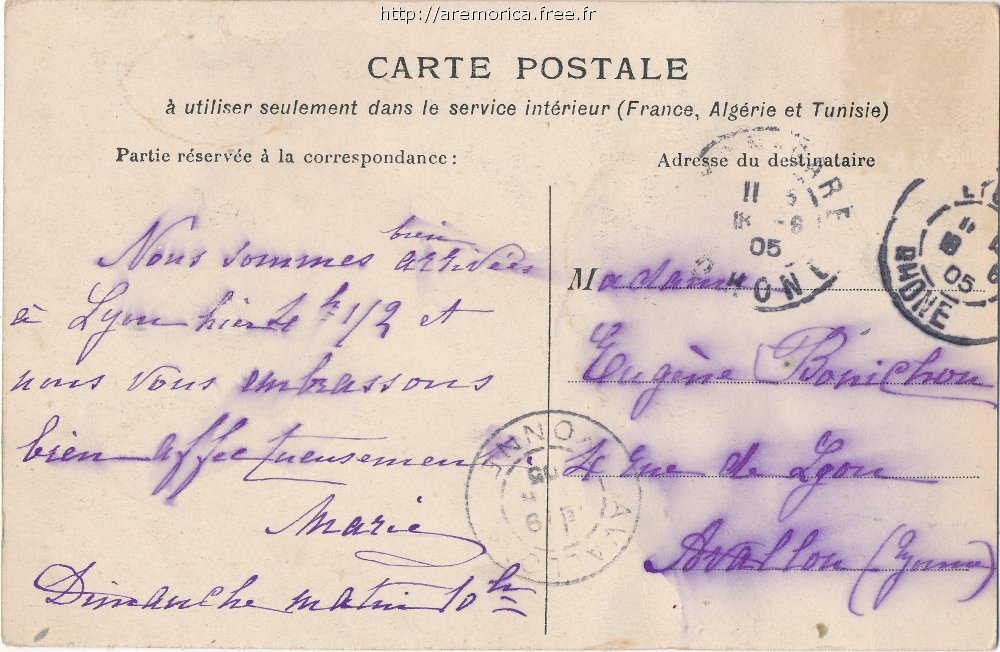 http://aremorica.free.fr
CARTE POSTALE
à utiliser seulement dans le service intérieur (France, Algérie et Tunisie)
Partie réservée à la correspondance :
Nous sommes bien arrivées
à Lyon hier 4 h 1/2 et
nous vous embrassons
bien affectueusement.
Marie
Dimanche matin 10h
Adresse du destinataire
Madame
Eugène Bonichon
4 rue de Lyon
Avallon (Yonne)
GARE
11
18 -6
05
RHONE
LYON
11
18 6
05
RHONE
AVALLON
YONNE